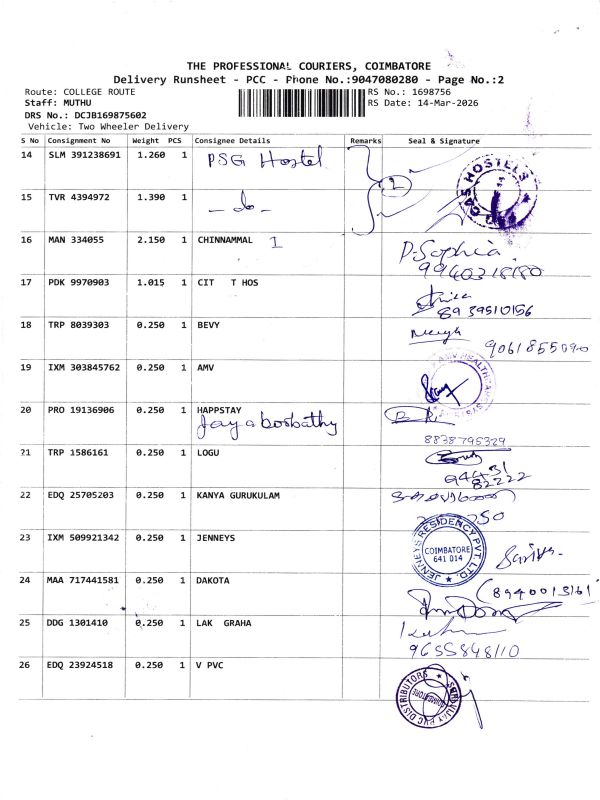 THE PROFESSIONAL COURIERS, COIMBATORE
Delivery Runsheet - PCC - Phone No.:9047080280 - Page No.:2
Route: COLLEGE ROUTE RS No.: 1698756
Staff: MUTHU RS Date: 14-Mar-2026
DRS No.: DCJB169875602
Vehicle: Two Wheeler Delivery
S No Consignment No Weight PCS Consignee Details Remarks Seal & Signature
14 SLM 391238691 1.260 1 PSG Hostel HOSTELS
15 TVR 4394972 1.390 1 - do - 2
16 MAN 334055 2.150 1 CHINNAMMAL 1 P. Sophia
9940318180
17 PDK 9970903 1.015 1 CIT T HOS
8939510156
18 TRP 8039303 0.250 1 BEVY
9061855090
19 IXM 303845762 0.250 1 AMV
20 PRO 19136906 0.250 1 HAPPSTAY
8838795329
21 TRP 1586161 0.250 1 LOGU
94431
82222
22 EDQ 25705203 0.250 1 KANYA GURUKULAM
23 IXM 509921342 0.250 1 JENNEYS JENNEYS RESIDENCY PVT. LTD. COIMBATORE 641 014
24 MAA 717441581 0.250 1 DAKOTA
25 DDG 1301410 0.250 1 LAK GRAHA
9655848110
26 EDQ 23924518 0.250 1 V PVC PVC DISTRIBUTORS